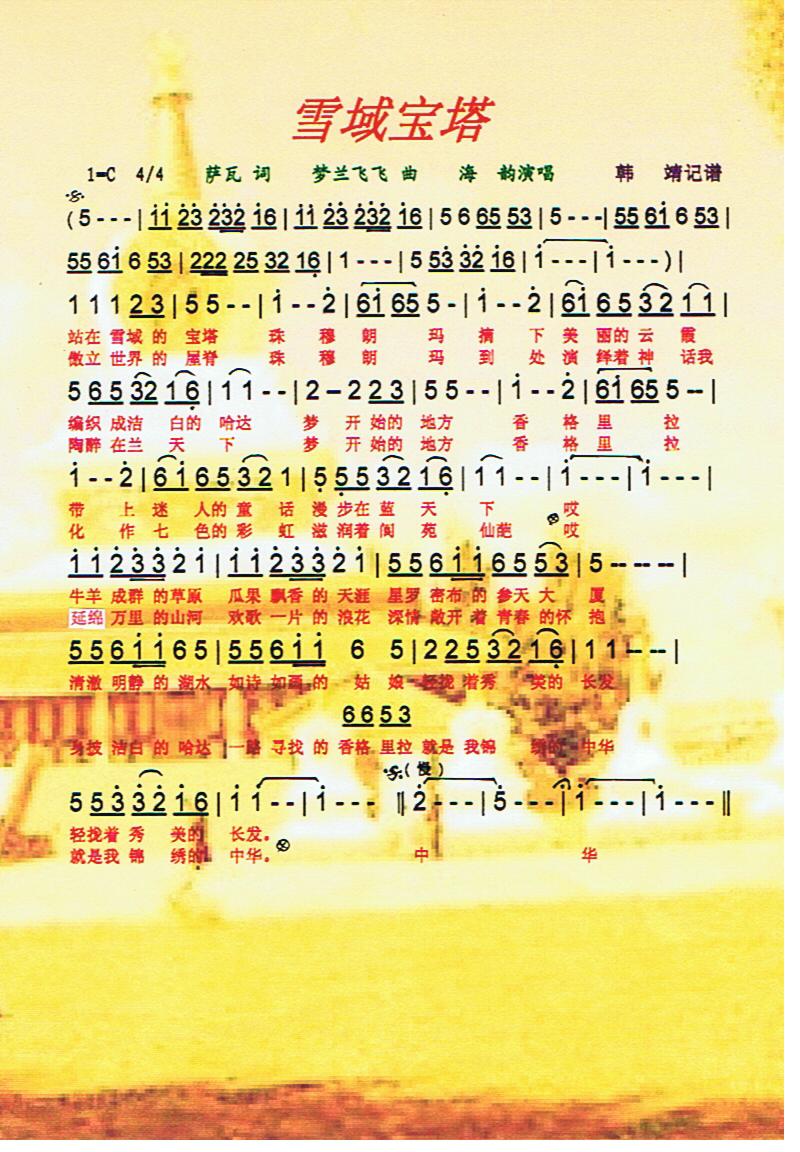 雪域宝塔
1=C 4/4 萨瓦 词 梦兰飞飞 曲 海 韵演唱 韩 靖记谱
(5 - - - | i̇i̇ 2̇3̇ 2̇3̇2̇ i̇6 | i̇i̇ 2̇3̇ 2̇3̇2̇ i̇6 | 5 6 65 53 | 5 - - - | 55 6i̇ 6 53 |
55 6i̇ 6 53 | 222 25 32 16̣ | 1 - - - | 5 53̇ 3̇2̇ i̇6 | i̇ - - - | i̇ - - - ) |
1 1 1 2 3 | 5 5 - - | i̇ - - 2̇ | 6i̇ 65 5 - | i̇ - - 2̇ | 6i̇ 6 5 3 2 1 1 |
站在 雪域 的 宝塔 珠 穆 朗 玛 摘 下 美 丽的 云 霞
傲立 世界 的 屋脊 珠 穆 朗 玛 到 处 演 绎着 神 话我
5 6 5 32 16̣ | 1 1 - - | 2 - 2 2 3 | 5 5 - - | i̇ - - 2̇ | 6i̇ 65 5 - - |
编织 成洁 白的 哈达 梦 开 始的 地方 香 格 里 拉
陶醉 在兰 天 下 梦 开 始的 地方 香 格 里 拉
i̇ - - 2̇ | 6 i̇ 6 5 3 2 1 | 5̣ 5 5 3 2 1 6̣ | 1 1 - - | i̇ - - - | i̇ - - - |
带 上 迷 人的 童 话 漫 步在 蓝 天 下 哎
化 作 七 色的 彩 虹 滋 润着 阆 苑 仙葩 哎
i̇ i̇ 2̇ 3̇ 3̇ 2̇ i̇ | i̇ i̇ 2̇ 3̇ 3̇ 2̇ i̇ | 5 5 6 i̇ i̇ 6 5 5 3 | 5 - - - - |
牛羊 成群 的草原 瓜果 飘香 的 天涯 星罗 密布 的 参天 大 厦
延绵 万里 的山河 欢歌 一片 的 浪花 深情 敞开 着 青春 的怀 抱
5 5 6 i̇ i̇ 6 5 | 5 5 6 i̇ i̇ 6 5 | 2 2 5 3 2 1 6̣ | 1 1 - - - |
清澈 明静 的 湖水 如诗 如画 的 姑 娘 轻拢 着秀 美的 长发
6 6 5 3
身披 洁白 的 哈达 一路 寻找 的 香格 里拉 就是 我锦 绣的 中华
(慢)
5 5 3̇ 3̇ 2̇ i̇ 6 | i̇ i̇ - - | i̇ - - - ‖ 2̇ - - - | 5̇ - - - | i̇ - - - | i̇ - - - ‖
轻拢着 秀 美的 长发。
就是我 锦 绣的 中华。 中 华